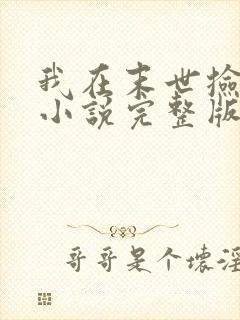 我在末世捡
小说完整版
哥哥是个坏淫